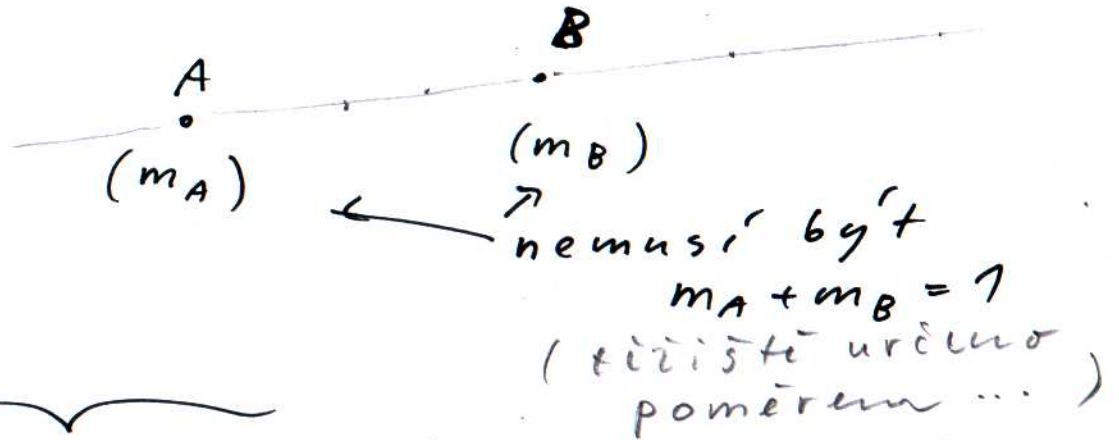 B
A
(m_B)
(m_A)
nemusí být
m_A + m_B = 1
(těžiště určeno
poměrem ...)